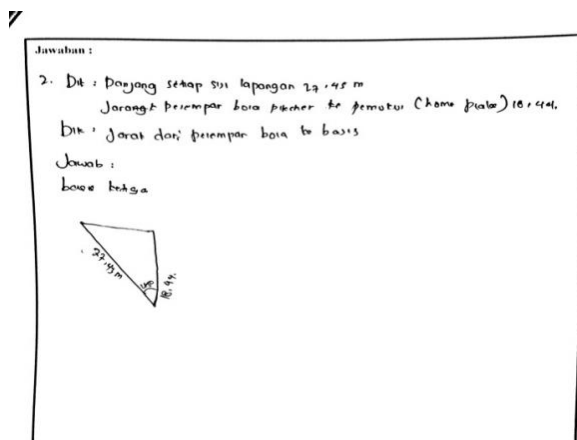 Jawaban :
2. Dit : Panjang setiap sisi lapangan 27,45 m
Jarangk perempar bola pitcher ke pemukul (home plate) 18,44.
Dik : Jarak dari perempar bola to basis
Jawab :
base ketiga
27,45 m
18,44